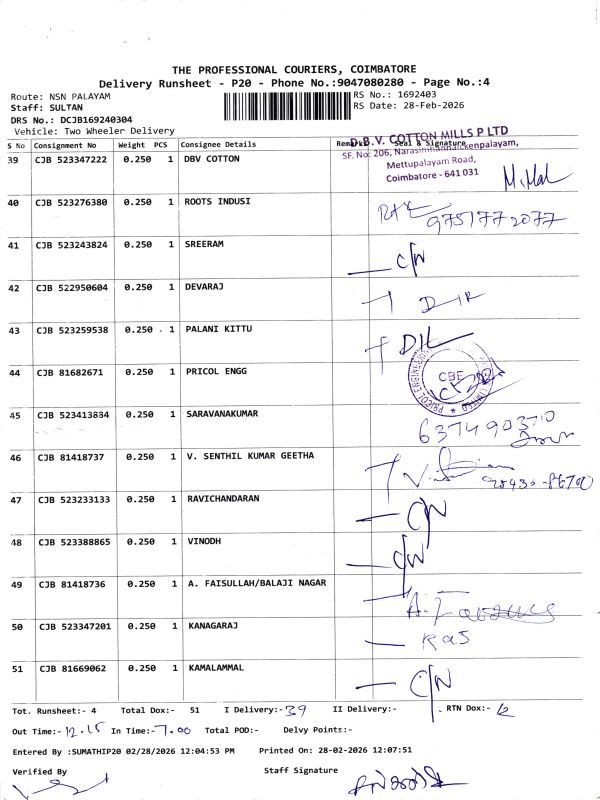 THE PROFESSIONAL COURIERS, COIMBATORE
Delivery Runsheet - P20 - Phone No.:9047080280 - Page No.:4
Route: NSN PALAYAM
Staff: SULTAN
DRS No.: DCJB169240304
Vehicle: Two Wheeler Delivery
RS No.: 1692403
RS Date: 28-Feb-2026
S No Consignment No Weight PCS Consignee Details Remark Seal & Signature
D.B.V. COTTON MILLS P LTD
SF. No: 206,
Mettupalayam Road,
Coimbatore - 641 031
39 CJB 523347222 0.250 1 DBV COTTON
40 CJB 523276380 0.250 1 ROOTS INDUSI 9751772077
41 CJB 523243824 0.250 1 SREERAM C/N
42 CJB 522950604 0.250 1 DEVARAJ
43 CJB 523259538 0.250 1 PALANI KITTU
44 CJB 81682671 0.250 1 PRICOL ENGG CBE
45 CJB 523413834 0.250 1 SARAVANAKUMAR
46 CJB 81418737 0.250 1 V. SENTHIL KUMAR GEETHA
47 CJB 523233133 0.250 1 RAVICHANDRAN C/N
48 CJB 523388865 0.250 1 VINODH C/N
49 CJB 81418736 0.250 1 A. FAISULLAH/BALAJI NAGAR
50 CJB 523347201 0.250 1 KANAGARAJ Raj
51 CJB 81669062 0.250 1 KAMALAMMAL C/N
Tot. Runsheet:- 4 Total Dox:- 51 I Delivery:- 39 II Delivery:- RTN Dox:- 12
Out Time:- 12.15 In Time:- 7.00 Total POD:- Delvy Points:-
Entered By :SUMATHIP20 02/28/2026 12:04:53 PM Printed On: 28-02-2026 12:07:51
Verified By Staff Signature